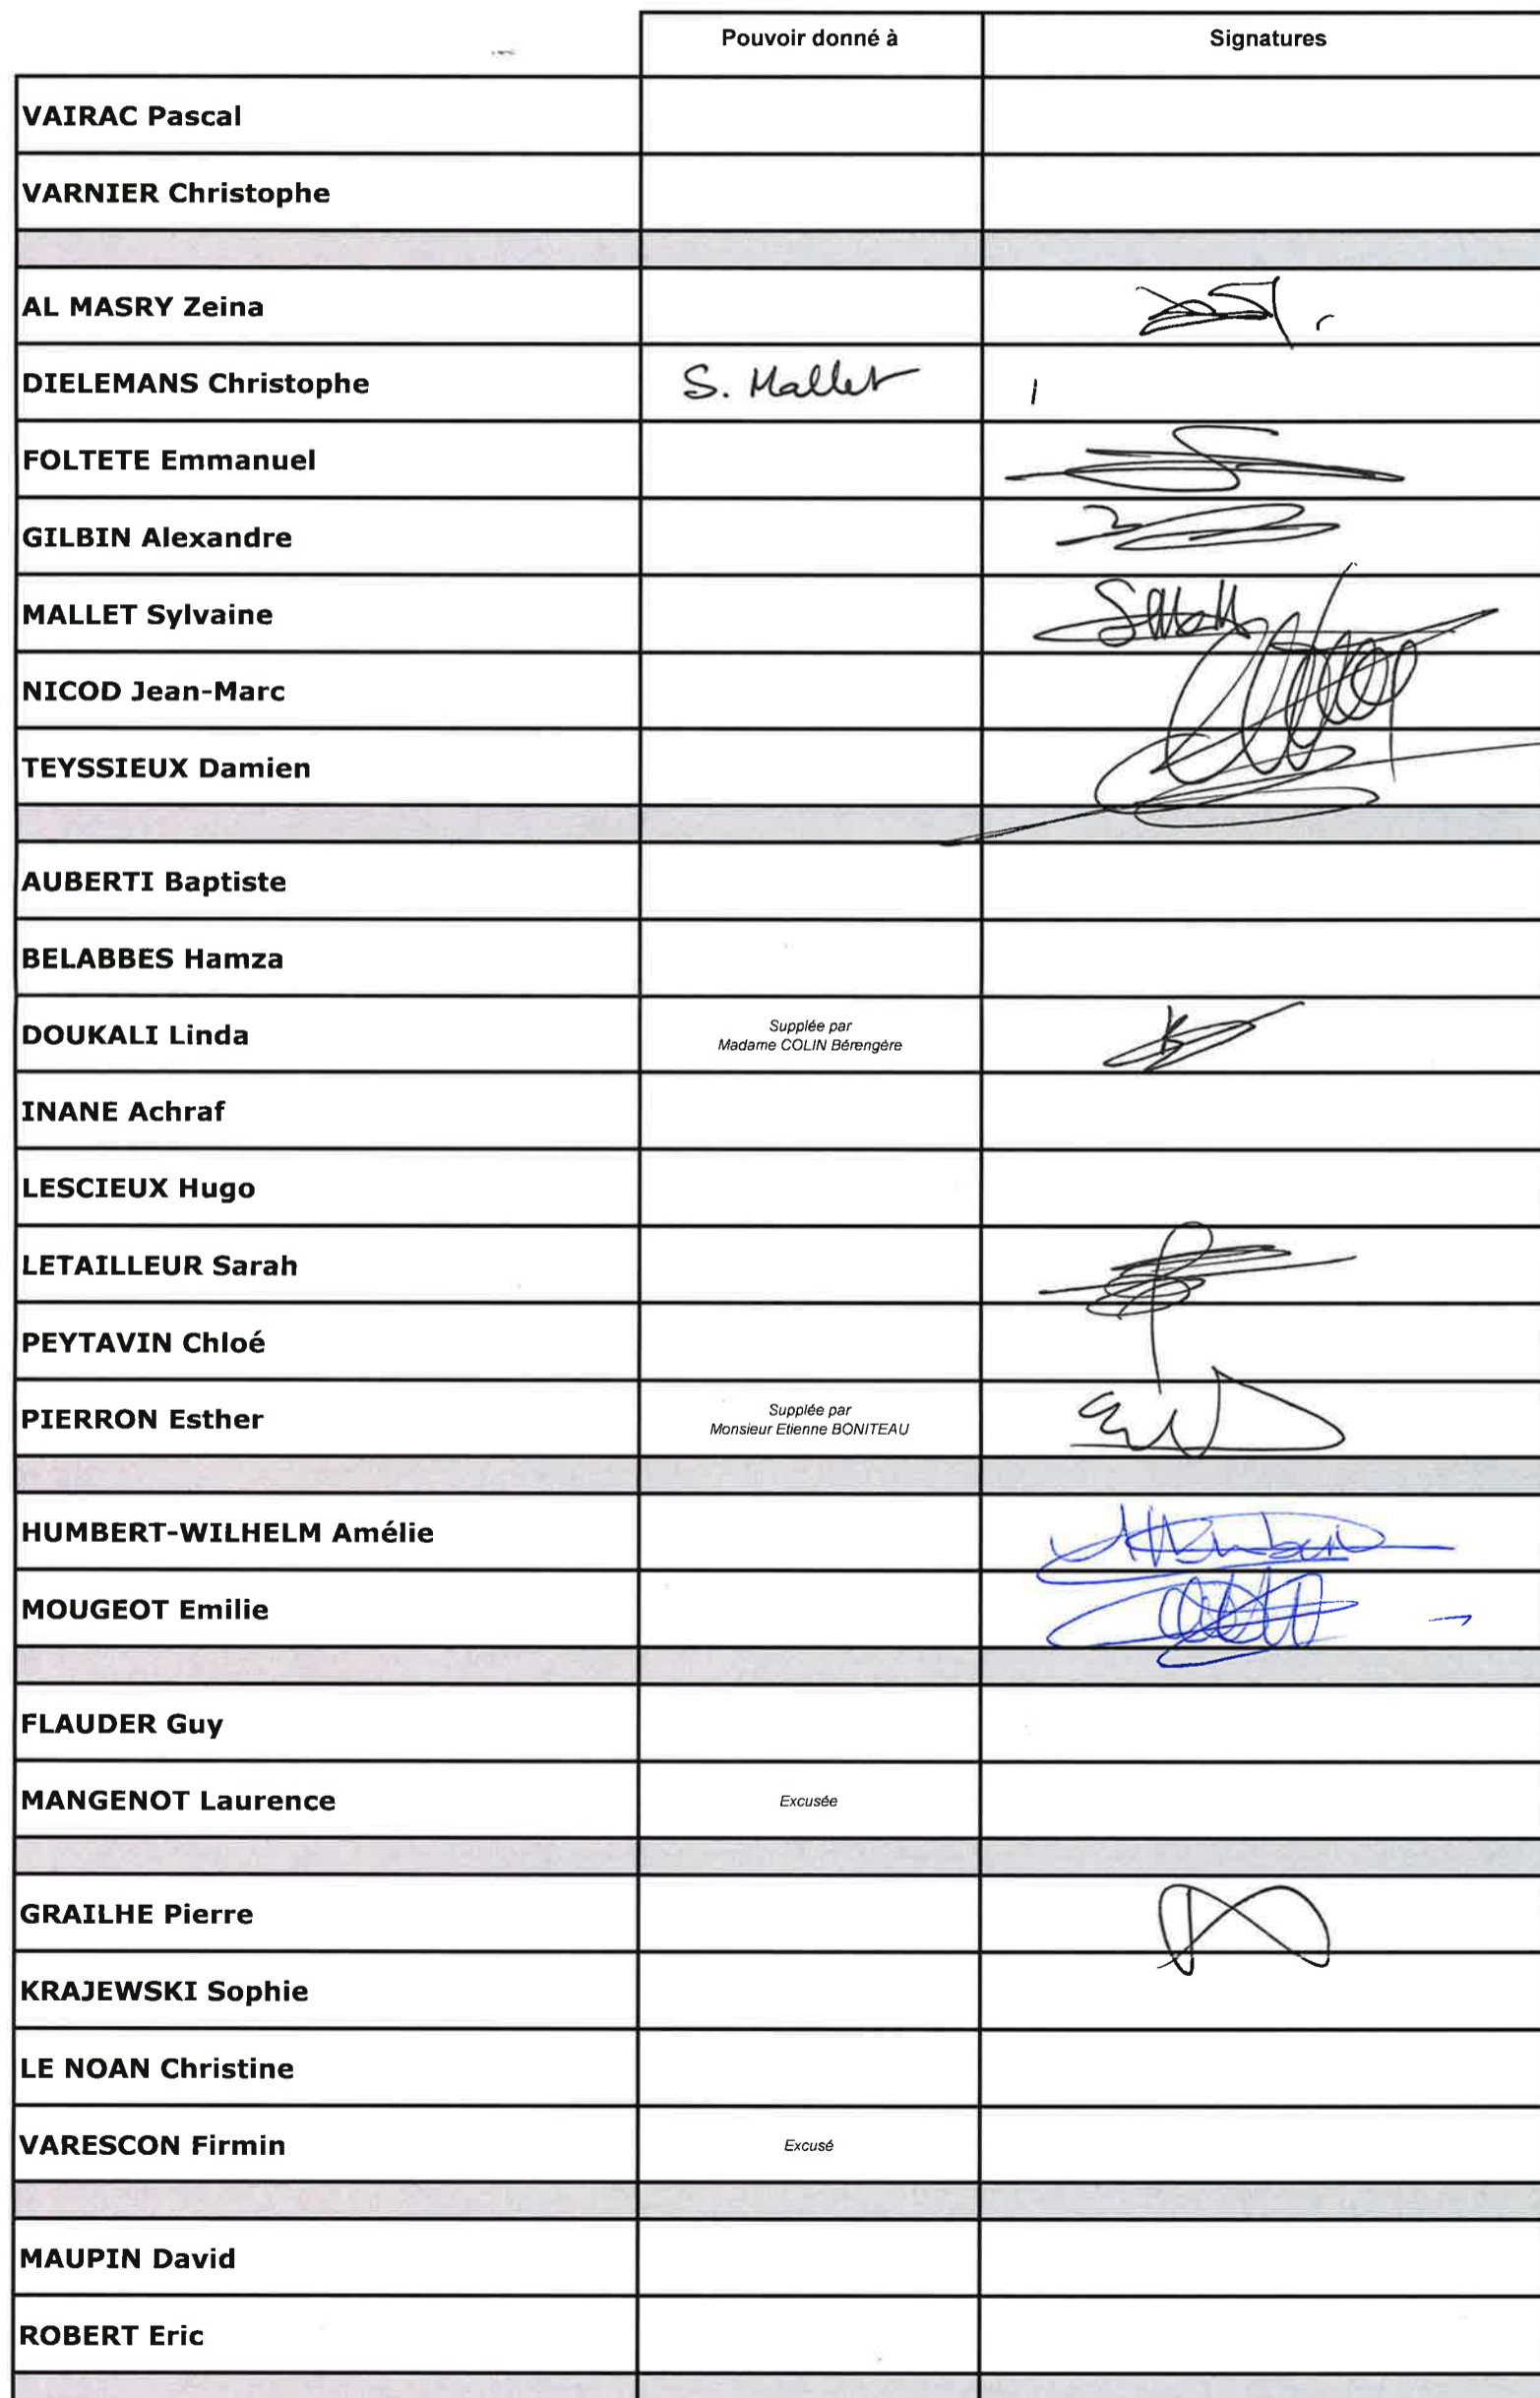 Pouvoir donné à Signatures
VAIRAC Pascal
VARNIER Christophe
AL MASRY Zeina
DIELEMANS Christophe S. Mallet
FOLTETE Emmanuel
GILBIN Alexandre
MALLET Sylvaine
NICOD Jean-Marc
TEYSSIEUX Damien
AUBERTI Baptiste
BELABBES Hamza
DOUKALI Linda
Supplée par
Madame COLIN Bérengére
INANE Achraf
LESCIEUX Hugo
LETAILLEUR Sarah
PEYTAVIN Chloé
PIERRON Esther
Supplée par
Monsieur Etienne BONITEAU
HUMBERT-WILHELM Amélie
MOUGEOT Emilie
FLAUDER Guy
MANGENOT Laurence Excusée
GRAILHE Pierre
KRAJEWSKI Sophie
LE NOAN Christine
VARESCON Firmin Excusé
MAUPIN David
ROBERT Eric